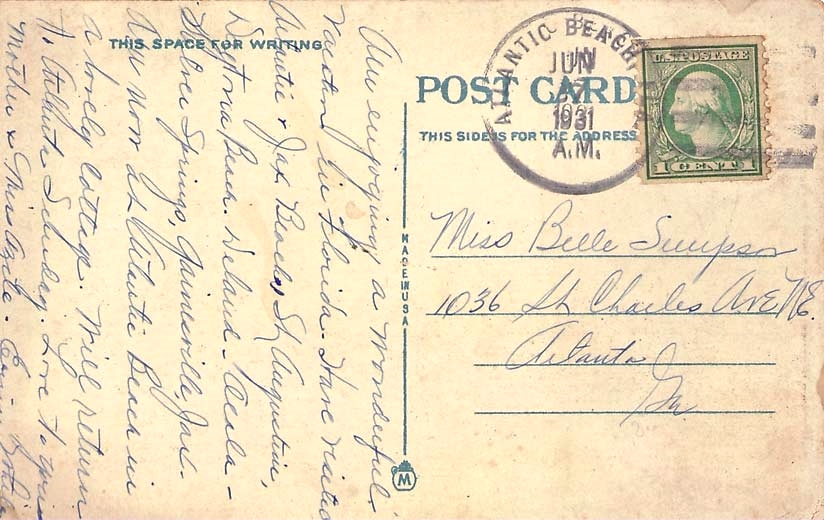 THIS SPACE FOR WRITING
Am enjoying a wonderful
vacation in Florida. Have visited
Atlantic & Jax Beaches, St Augustine,
Daytona Beach. Deland - Ocala -
Silver Springs, Gainesville, Jax.
Am now at Atlantic Beach in
a lovely cottage. Will return
to Atlanta Saturday. Love to you
Mother &
POST CARD
THIS SIDE IS FOR THE ADDRESS
ATLANTIC BEACH
JUN
1931
A.M.
U.S. POSTAGE
1 CENT 1
MADE IN USA
M
Miss Belle Simpson
1036 St Charles Ave N.E.
Atlanta
Ga